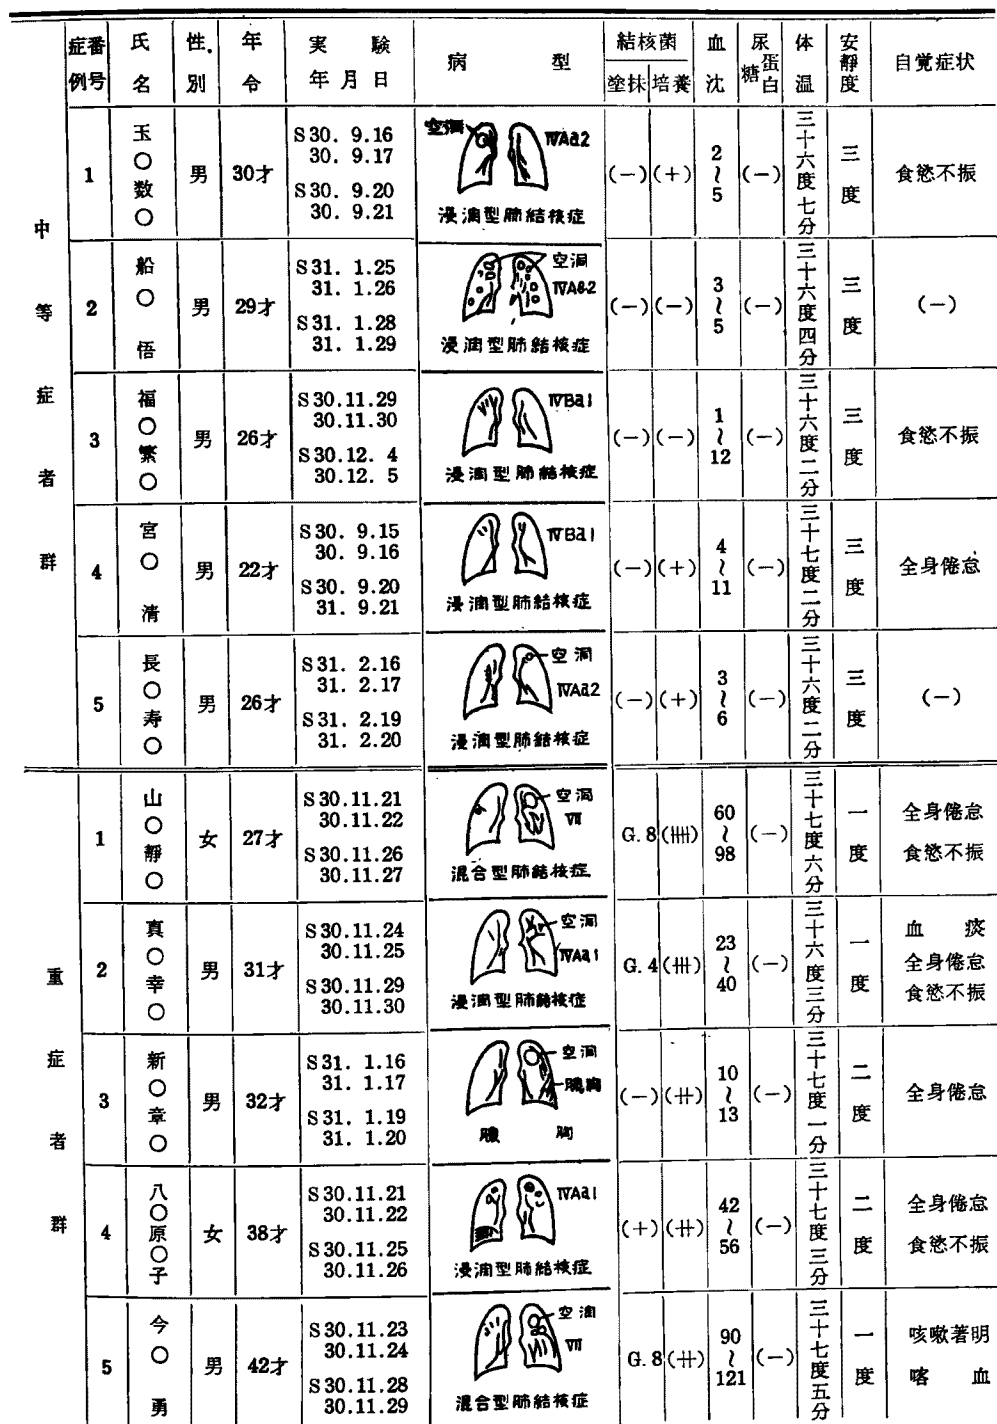 症例番号 氏名 性別 年令 実験年月日 病型 結核菌 塗抹 培養 血沈 尿 糖 蛋白 体温 安静度 自覚症状
中等症者群
1 玉○数○ 男 30才 S30. 9.16 30. 9.17 S30. 9.20 30. 9.21 空洞 ⅣAa2 浸潤型肺結核症 (−) (+) 2~5 (−) 三十六度七分 三度 食慾不振
2 船○悟 男 29才 S31. 1.25 31. 1.26 S31. 1.28 31. 1.29 空洞 ⅣA&2 浸潤型肺結核症 (−) (−) 3~5 (−) 三十六度四分 三度 (−)
3 福○繁○ 男 26才 S30.11.29 30.11.30 S30.12. 4 30.12. 5 ⅣBa1 浸潤型肺結核症 (−) (−) 1~12 (−) 三十六度二分 三度 食慾不振
4 宮○清 男 22才 S30. 9.15 30. 9.16 S30. 9.20 31. 9.21 ⅣBa1 浸潤型肺結核症 (−) (+) 4~11 (−) 三十七度二分 三度 全身倦怠
5 長○寿○ 男 26才 S31. 2.16 31. 2.17 S31. 2.19 31. 2.20 空洞 ⅣAa2 浸潤型肺結核症 (−) (+) 3~6 (−) 三十六度二分 三度 (−)
重症者群
1 山○靜○ 女 27才 S30.11.21 30.11.22 S30.11.26 30.11.27 空洞 Ⅶ 混合型肺結核症 G.8 (卌) 60~98 (−) 三十七度六分 一度 全身倦怠 食慾不振
2 真○幸○ 男 31才 S30.11.24 30.11.25 S30.11.29 30.11.30 空洞 ⅣAa1 浸潤型肺結核症 G.4 (卅) 23~40 (−) 三十六度三分 一度 血痰 全身倦怠 食慾不振
3 新○章○ 男 32才 S31. 1.16 31. 1.17 S31. 1.19 31. 1.20 空洞 膿胸 膿胸 (−) (廾) 10~13 (−) 三十七度一分 二度 全身倦怠
4 八○原○子 女 38才 S30.11.21 30.11.22 S30.11.25 30.11.26 ⅣAa1 浸潤型肺結核症 (+) (廾) 42~56 (−) 三十七度三分 二度 全身倦怠 食慾不振
5 今○勇 男 42才 S30.11.23 30.11.24 S30.11.28 30.11.29 空洞 Ⅶ 混合型肺結核症 G.8 (廾) 90~121 (−) 三十七度五分 一度 咳嗽著明 喀血